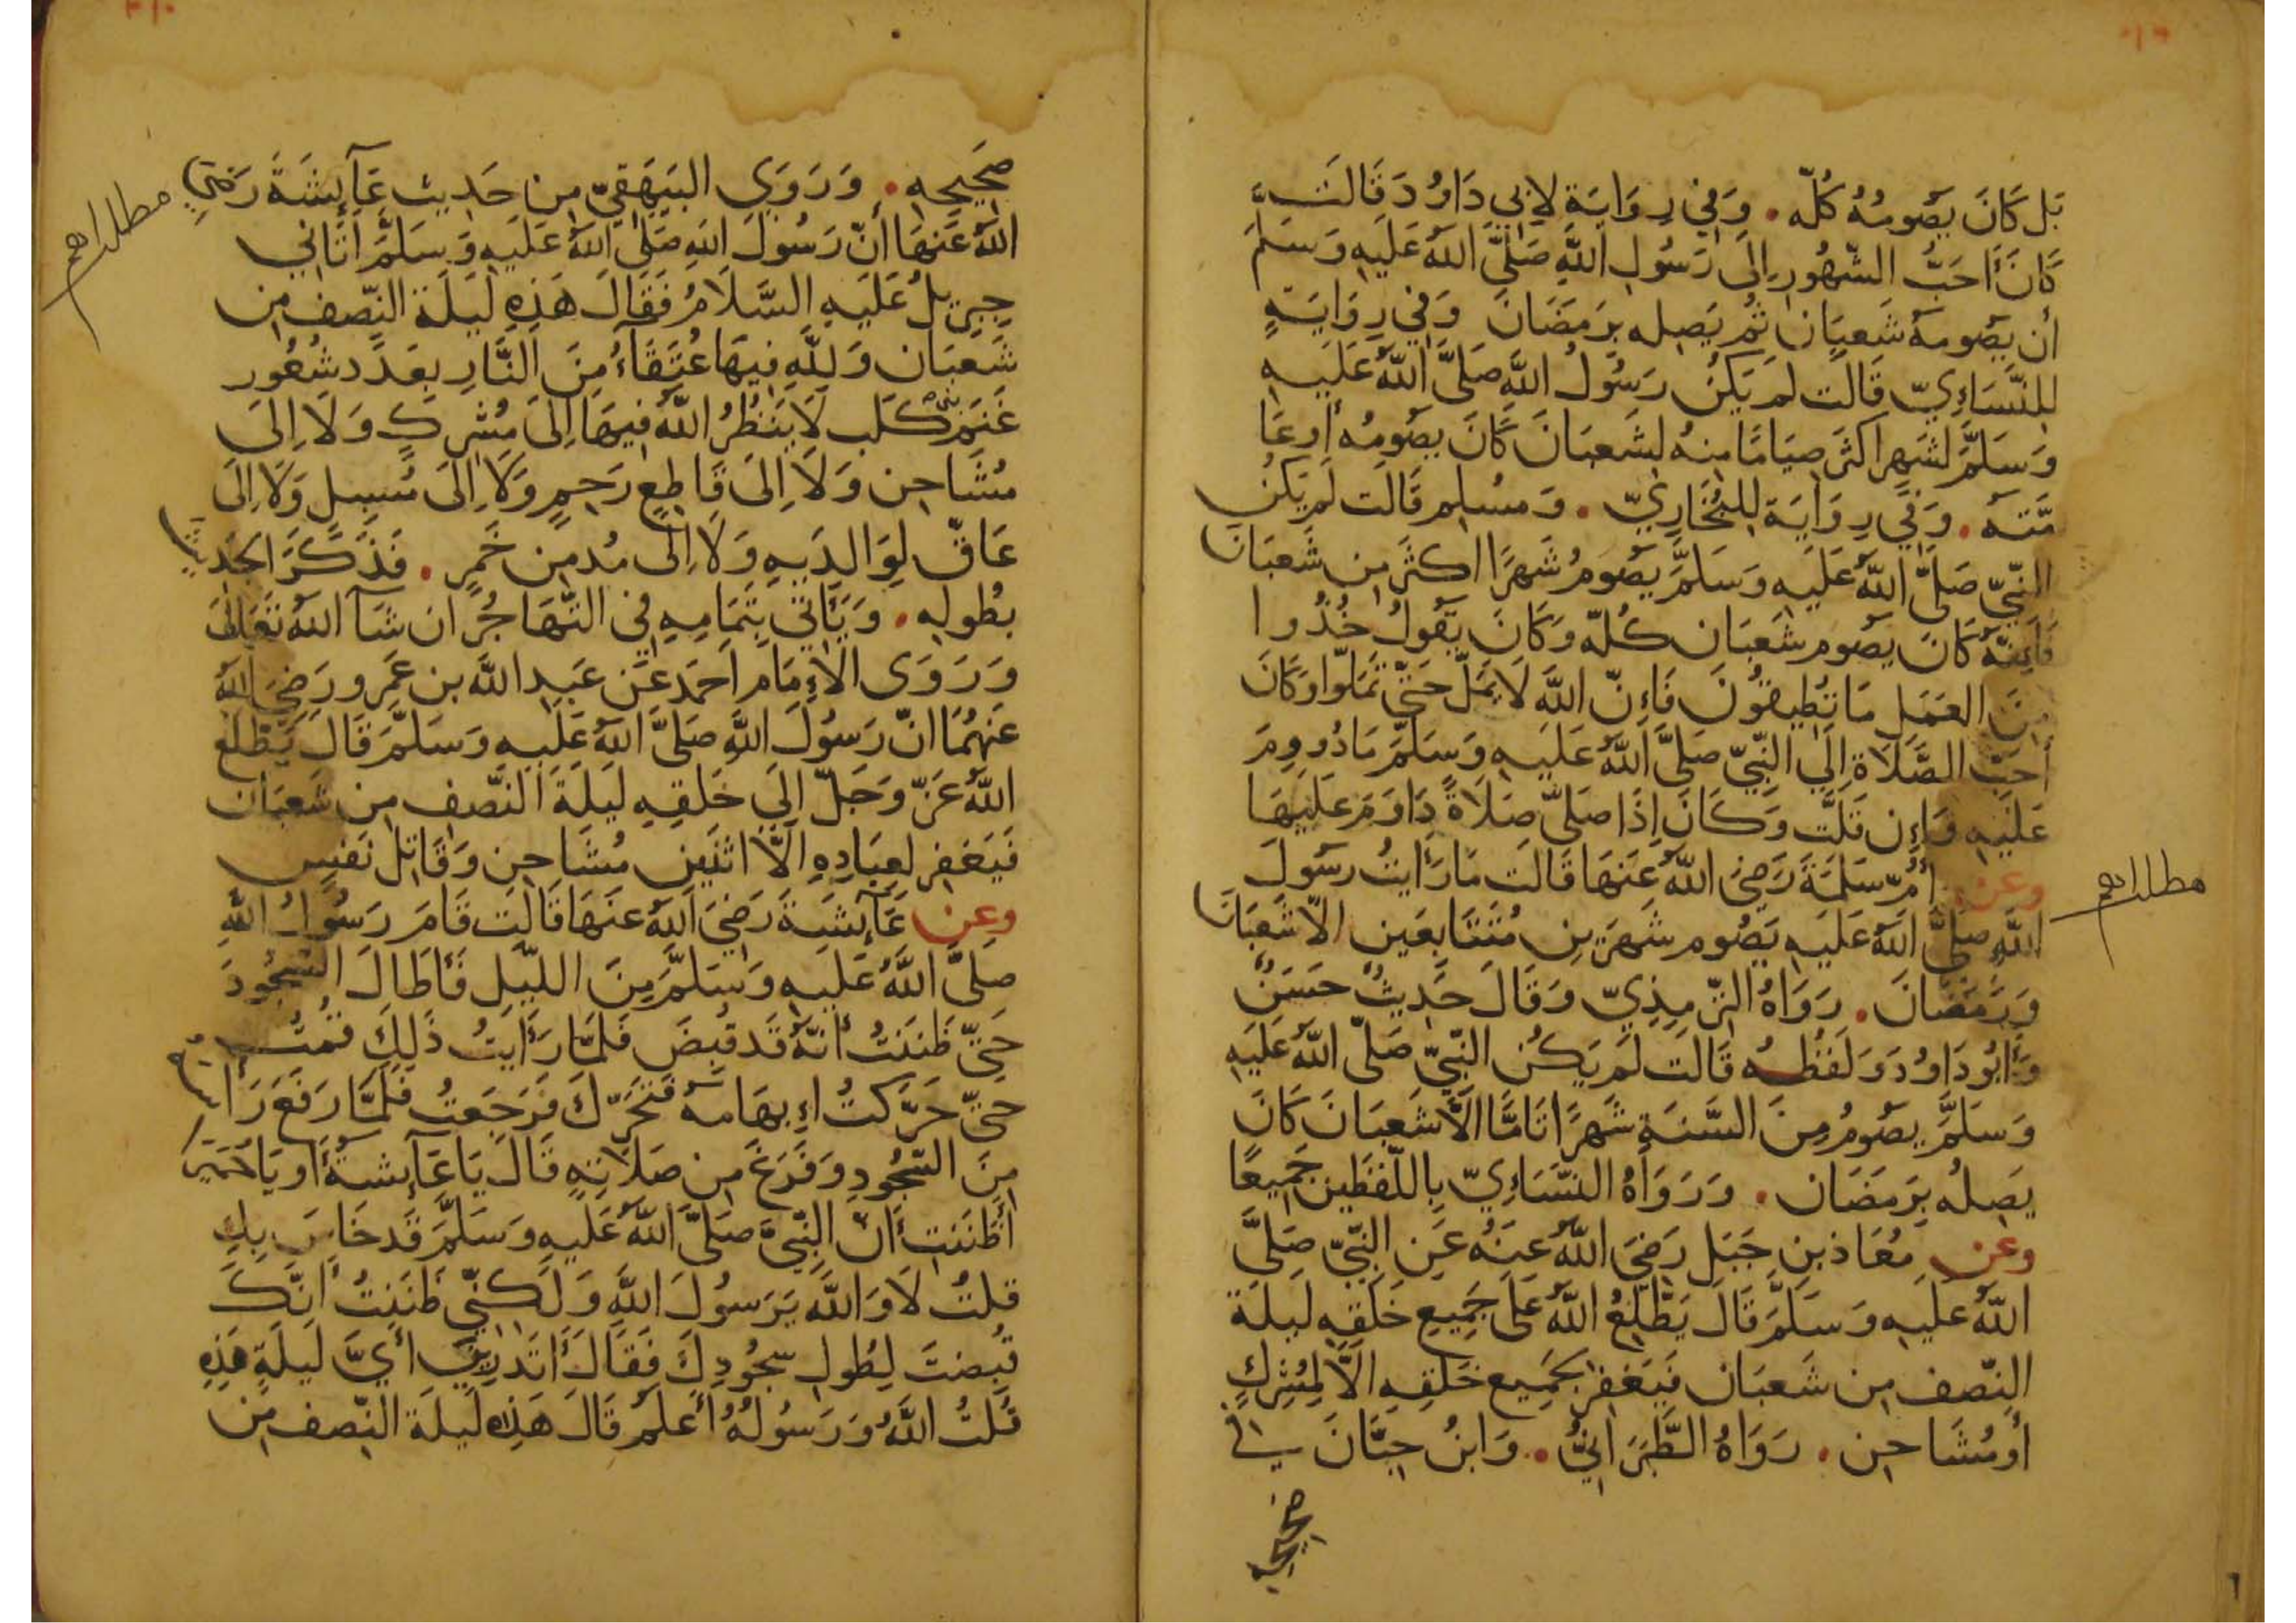 بَل كَانَ يَصُومُهُ كُلّه . وَفي رِوَايَة لاِبي دَاوُد قَالَت
كَانَ أَحَبُّ الشّهُورِ اِلَى رَسُولِ اللَّهِ صَلَّى اللَّهُ عَلَيهِ وَسَلَّمَ
أن يَصُومَهُ شَعبَان ثُم يَصِله بِرَمَضَانَ وَفي رِوَايَةٍ
لِلنَّسَاءِيّ قَالَت لَم يَكُن رَسُولُ اللَّه صَلَّى اللَّهُ عَلَيهِ
وَسَلَّمَ لشَهرٍ اكثَر صِيَامًا مِنهُ لِشَعبَانَ كَانَ يَصُومُه أَو عَا
مَّتَه . وَفي رِوَايَة لِلبُخَارِيّ . وَمسُلِم قَالَت لَم يَكُن
النَّبِيّ صَلَّى اللَّهُ عَلَيهِ وَسَلَّمَ يَصُومُ شَهرًا اكثَر مِن شَعبَانَ
فَاِنَّهُ كَانَ يصُوم شَعبَان كُلّه وَكَانَ يَقُولُ خُذُوا
مِنَ العَمَلِ مَا تُطِيقُونَ فَاِنّ اللَّهَ لَا يَمَلّ حَتّى تَمَلّوا وَكَانَ
أَحَبّ الصَّلَاة اِلَي النَّبِيّ صَلَّى اللَّهُ عَلَيهِ وَسَلَّمَ مَا دُووِمَ
عَلَيهِ وَاِن قَلَّت وَكَانَ اِذَا صَلَّى صَلَاةً دَاوَمَ عَلَيهَا
وعَن أُمّ سَلَمَةَ رَضِيَ اللَّهُ عَنهَا قَالَت مَا رَأَايتُ رَسُولَ
اللَّهِ صَلَّى اللَّهُ عَلَيهِ يَصُوم شَهرَينِ مُتَتَابعَين الاّ شَعبَانَ
وَرَمَضَانَ . رَوَاهُ التِّرمِذِيّ وَقَالَ حَدِيثٌ حَسَنٌ
وَأبُو دَاوُدَ وَلَفظُه قَالَت لَم يَكُن النَّبِيّ صَلَّى اللَّهُ عَلَيهِ
وَسَلَّمَ يَصُومُ مِنَ السَّنَةِ شَهرًا تَامًّا الاَّ شَعبَانَ كَانَ
يَصِلُه بِرَمَضَان . وَرَوَاهُ النَّسَاءِيّ بِاللّفظَين جَمِيعًا
وعَن مُعَاذ بنِ جَبَلٍ رَضِيَ اللَّهُ عَنهُ عَنِ النَّبِيّ صَلَّى
اللَّهُ عَلَيهِ وَسَلَّمَ قَالَ يَطَّلِعُ اللَّهُ عَلَى جَمِيعِ خَلقِهِ لَيلَةَ
النِّصف مِن شَعبَان فَيَغفِرُ لجَمِيع خَلقِهِ الَّا لِمُشرِكٍ
أَو مُشَاحِن . رَوَاهُ الطَّبَرَانِيُّ . وَابنُ حِبَّانَ في
صَحِيحِه
مطلب اهم
صَحِيحِهِ . وَرَوَي البَيهَقِيّ مِن حَدِيث عَآيِشَةَ رَضِيَ
اللَّهُ عَنهَا أَنّ رَسُولَ اللَّهِ صَلَّى اللَّهُ عَلَيهِ وَسَلَّمَ أَتَانِي
جِبرِيلُ عَلَيهِ السَّلَامُ فَقَالَ هَذِهِ لَيلَة النِّصف مِن
شَعبَان وَلِلَّهِ فِيهَا عُتَقَآءُ مِنَ النَّارِ بِعَدَد شُعُورِ
غَنَم بني كَلب لَا يَنظُرُ اللَّهُ فِيهَا اِلَى مُشرِكٍ وَلَا اِلَى
مُشَاحِن وَلَا اِلَى قَاطِعِ رَحِمٍ وَلَا اِلَى مُسبِلٍ وَلَا اِلَى
عَاقّ لِوَالِدَيهِ وَلَا اِلَى مُدمِن خَمرٍ . فَذَكَرَ الحَدِيث
بِطُولِهِ . وَيَأتي بِتَمَامِهِ فِي التَّهَاجُر ان شَآ اللَّهُ تَعَالَى
وَرَوَى الاِمَام اَحمَد عَن عَبدِ اللَّه بن عَمرو رَضِيَ اللَّهُ
عَنهُمَا انّ رَسُولَ اللَّهِ صَلَّى اللَّهُ عَلَيهِ وَسَلَّمَ قَالَ يَطَّلِعُ
اللَّهُ عَزّ وَجَلّ اِلَي خَلقِهِ لَيلَةَ النِّصف مِن شَعبَان
فَيَغفِر لِعِبَادِهِ اِلَّا اثنَين مُشَاحِن وَقَاتِل نَفسٍ
وعَن عَآيِشَةَ رَضِيَ اللَّهُ عَنهَا قَالَت قَامَ رَسُولُ اللَّهِ
صَلَّى اللَّهُ عَلَيهِ وَسَلَّمَ مِنَ اللَّيلِ فَأَطَالَ السُّجُودَ
حَتّى ظَنَنتُ أنّهُ قَد قُبِضَ فَلَمَّا رَأَايتُ ذَلِكَ قُمتُ
حَتّى حَرَّكتُ اِبهَامَهُ فَتَحَرّكَ فَرَجَعتُ فَلَمَّا رَفَعَ رَأسه
مِنَ السُّجُودِ وَفَرَغَ مِن صَلَاتِهِ قَالَ يَا عَآيشَةُ أَو يَا حُمَيرَا
أَظَنَنتِ أَنّ النَّبِيَّ صَلَّى اللَّهُ عَلَيهِ وَسَلَّمَ قَد خَاسَ بِكِ
قُلتُ لَا وَاللَّه يَرَسُولَ اللَّهِ وَلَكِنّي ظَنَنتُ أَنّكَ
قُبِضتَ لِطُولِ سُجُودِكَ فَقَالَ أَتَدرِينَ أَيَّ لَيلَةٍ هَذِهِ
قُلتُ اللَّهُ وَرَسُولُهُ أَعلَمُ قَالَ هَذِهِ لَيلَةُ النِّصف مِن
مطلب اهم